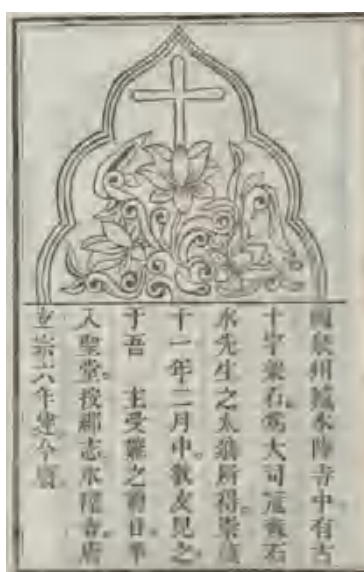 閩泉州城水陸寺中有古
十字架石為大司寇蘇石
水先生之太翁所得崇禎
十一年二月中教友見之
于吾　主受難之前日舁
入聖堂。按郡志水陸寺唐
玄宗六年建今廢